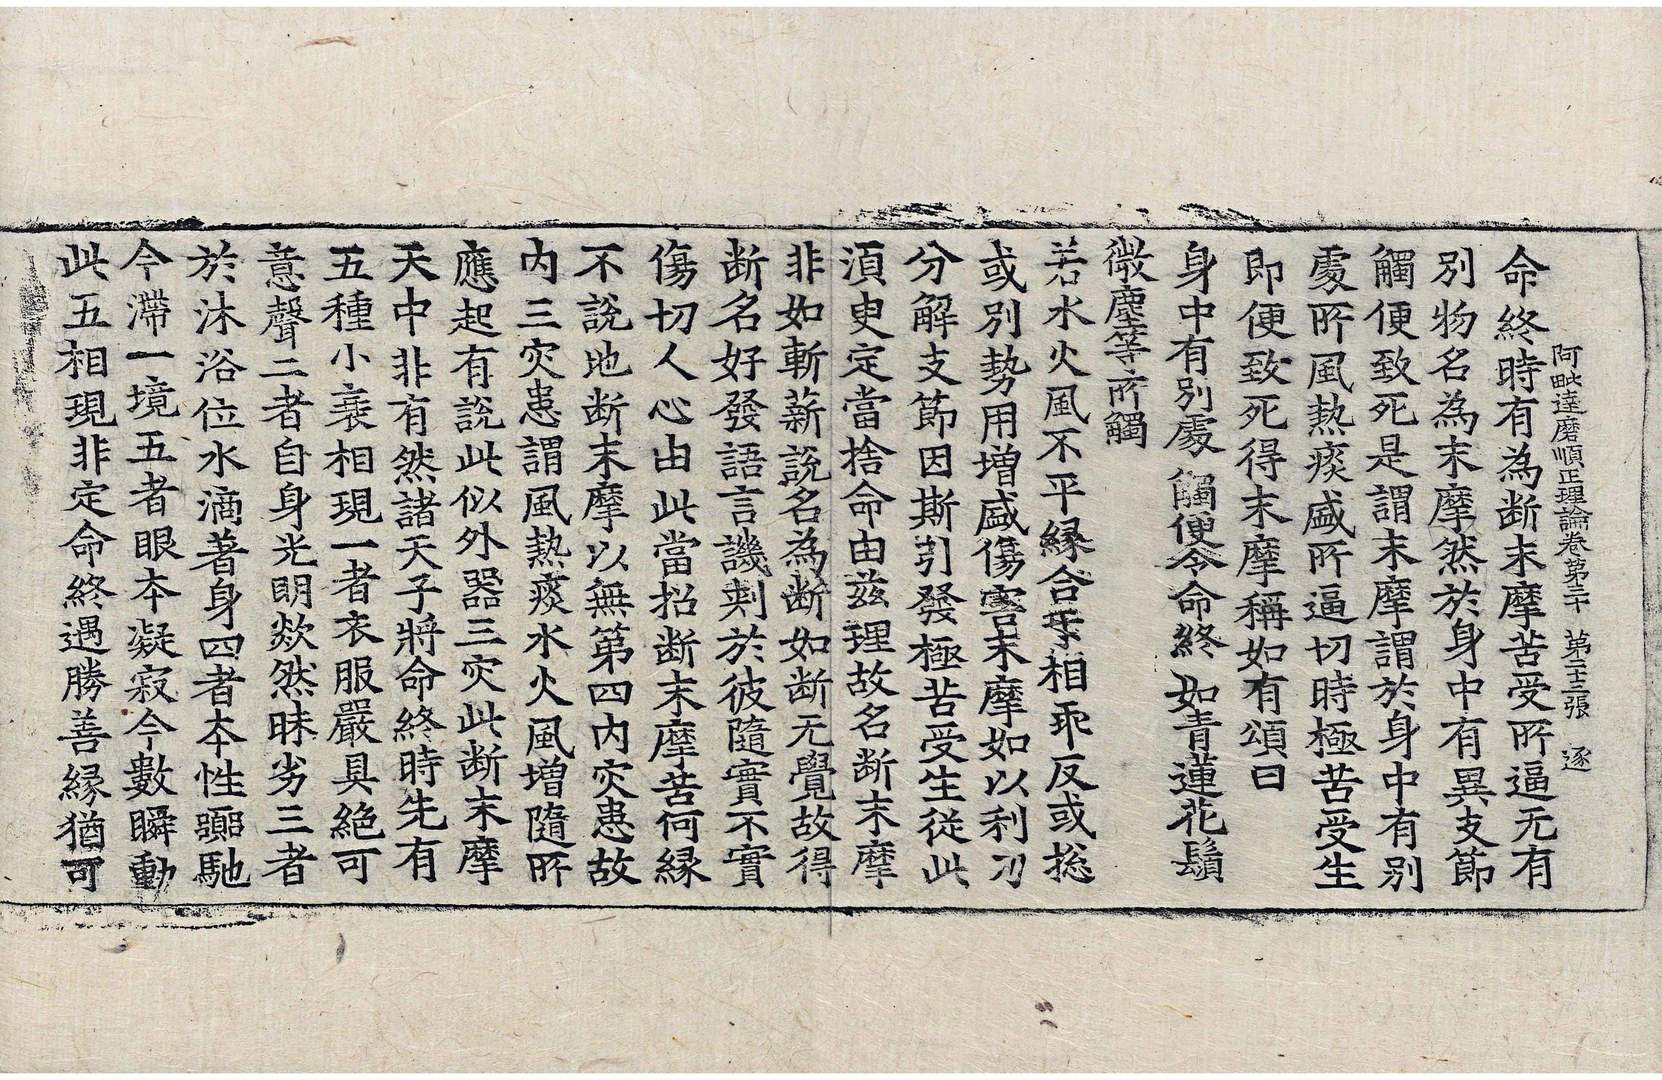 阿毗達磨順正理論卷第三十　第二十三張　逐
命終時有為断末摩苦受所逼无有
別物名為末摩然於身中有異支節
觸便致死是謂末摩謂於身中有別
處所風熱痰盛所逼切時極苦受生
即便致死得末摩稱如有頌曰
身中有別處　觸便令命終　如青蓮花鬚
微塵等所觸
若水火風不平縁合乖相乖反或捴
或別勢用増盛傷害末摩如以利刀
分解支節因斯引發極苦受生從此
湏臾定當捨命由茲理故名断末摩
非如斬薪説名為断如断无覺故得
断名好發語言譏刺於彼隨實不實
傷切人心由此當招断末摩苦何縁
不説地断末摩以無第四内灾患故
内三灾患謂風熱痰水火風増隨所
應起有説此似外器三灾此断末摩
天中非有然諸天子將命終時先有
五種小衰相現一者衣服嚴具絶可
意聲二者自身光明欻然昧劣三者
於沐浴位水滴著身四者本性嚻馳
今滯一境五者眼本凝寂今數瞬動
此五相現非定命終遇勝善縁猶可